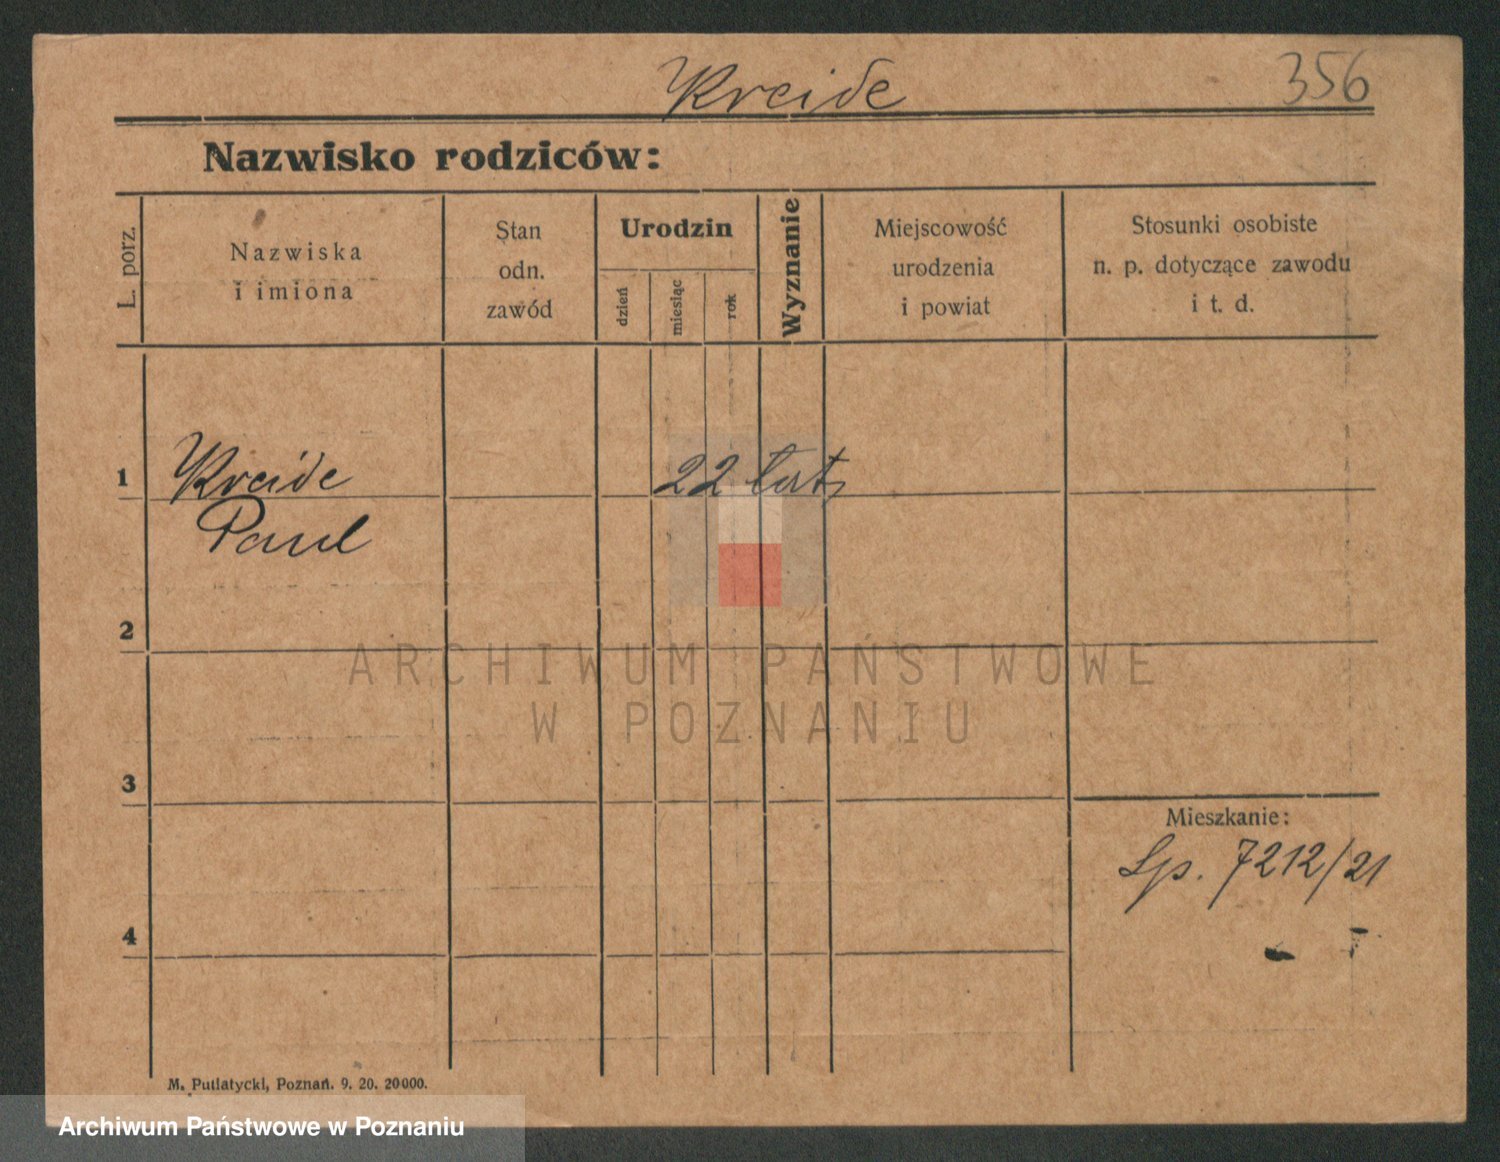 Kreide
356
Nazwisko rodziców:
L. porz.
Nazwiska
i imiona
Stan
odn.
zawód
Urodzin
dzień
miesiąc
rok
Wyznanie
Miejscowość
urodzenia
i powiat
Stosunki osobiste
n. p. dotyczące zawodu
i t. d.
1
Kreide
22 lat,
Paul
2
ARCHIWUM PAŃSTWOWE
W POZNANIU
3
Mieszkanie:
Lp. 7212/21
4
M. Putiatycki, Poznań. 9. 20. 20000.
Archiwum Państwowe w Poznaniu